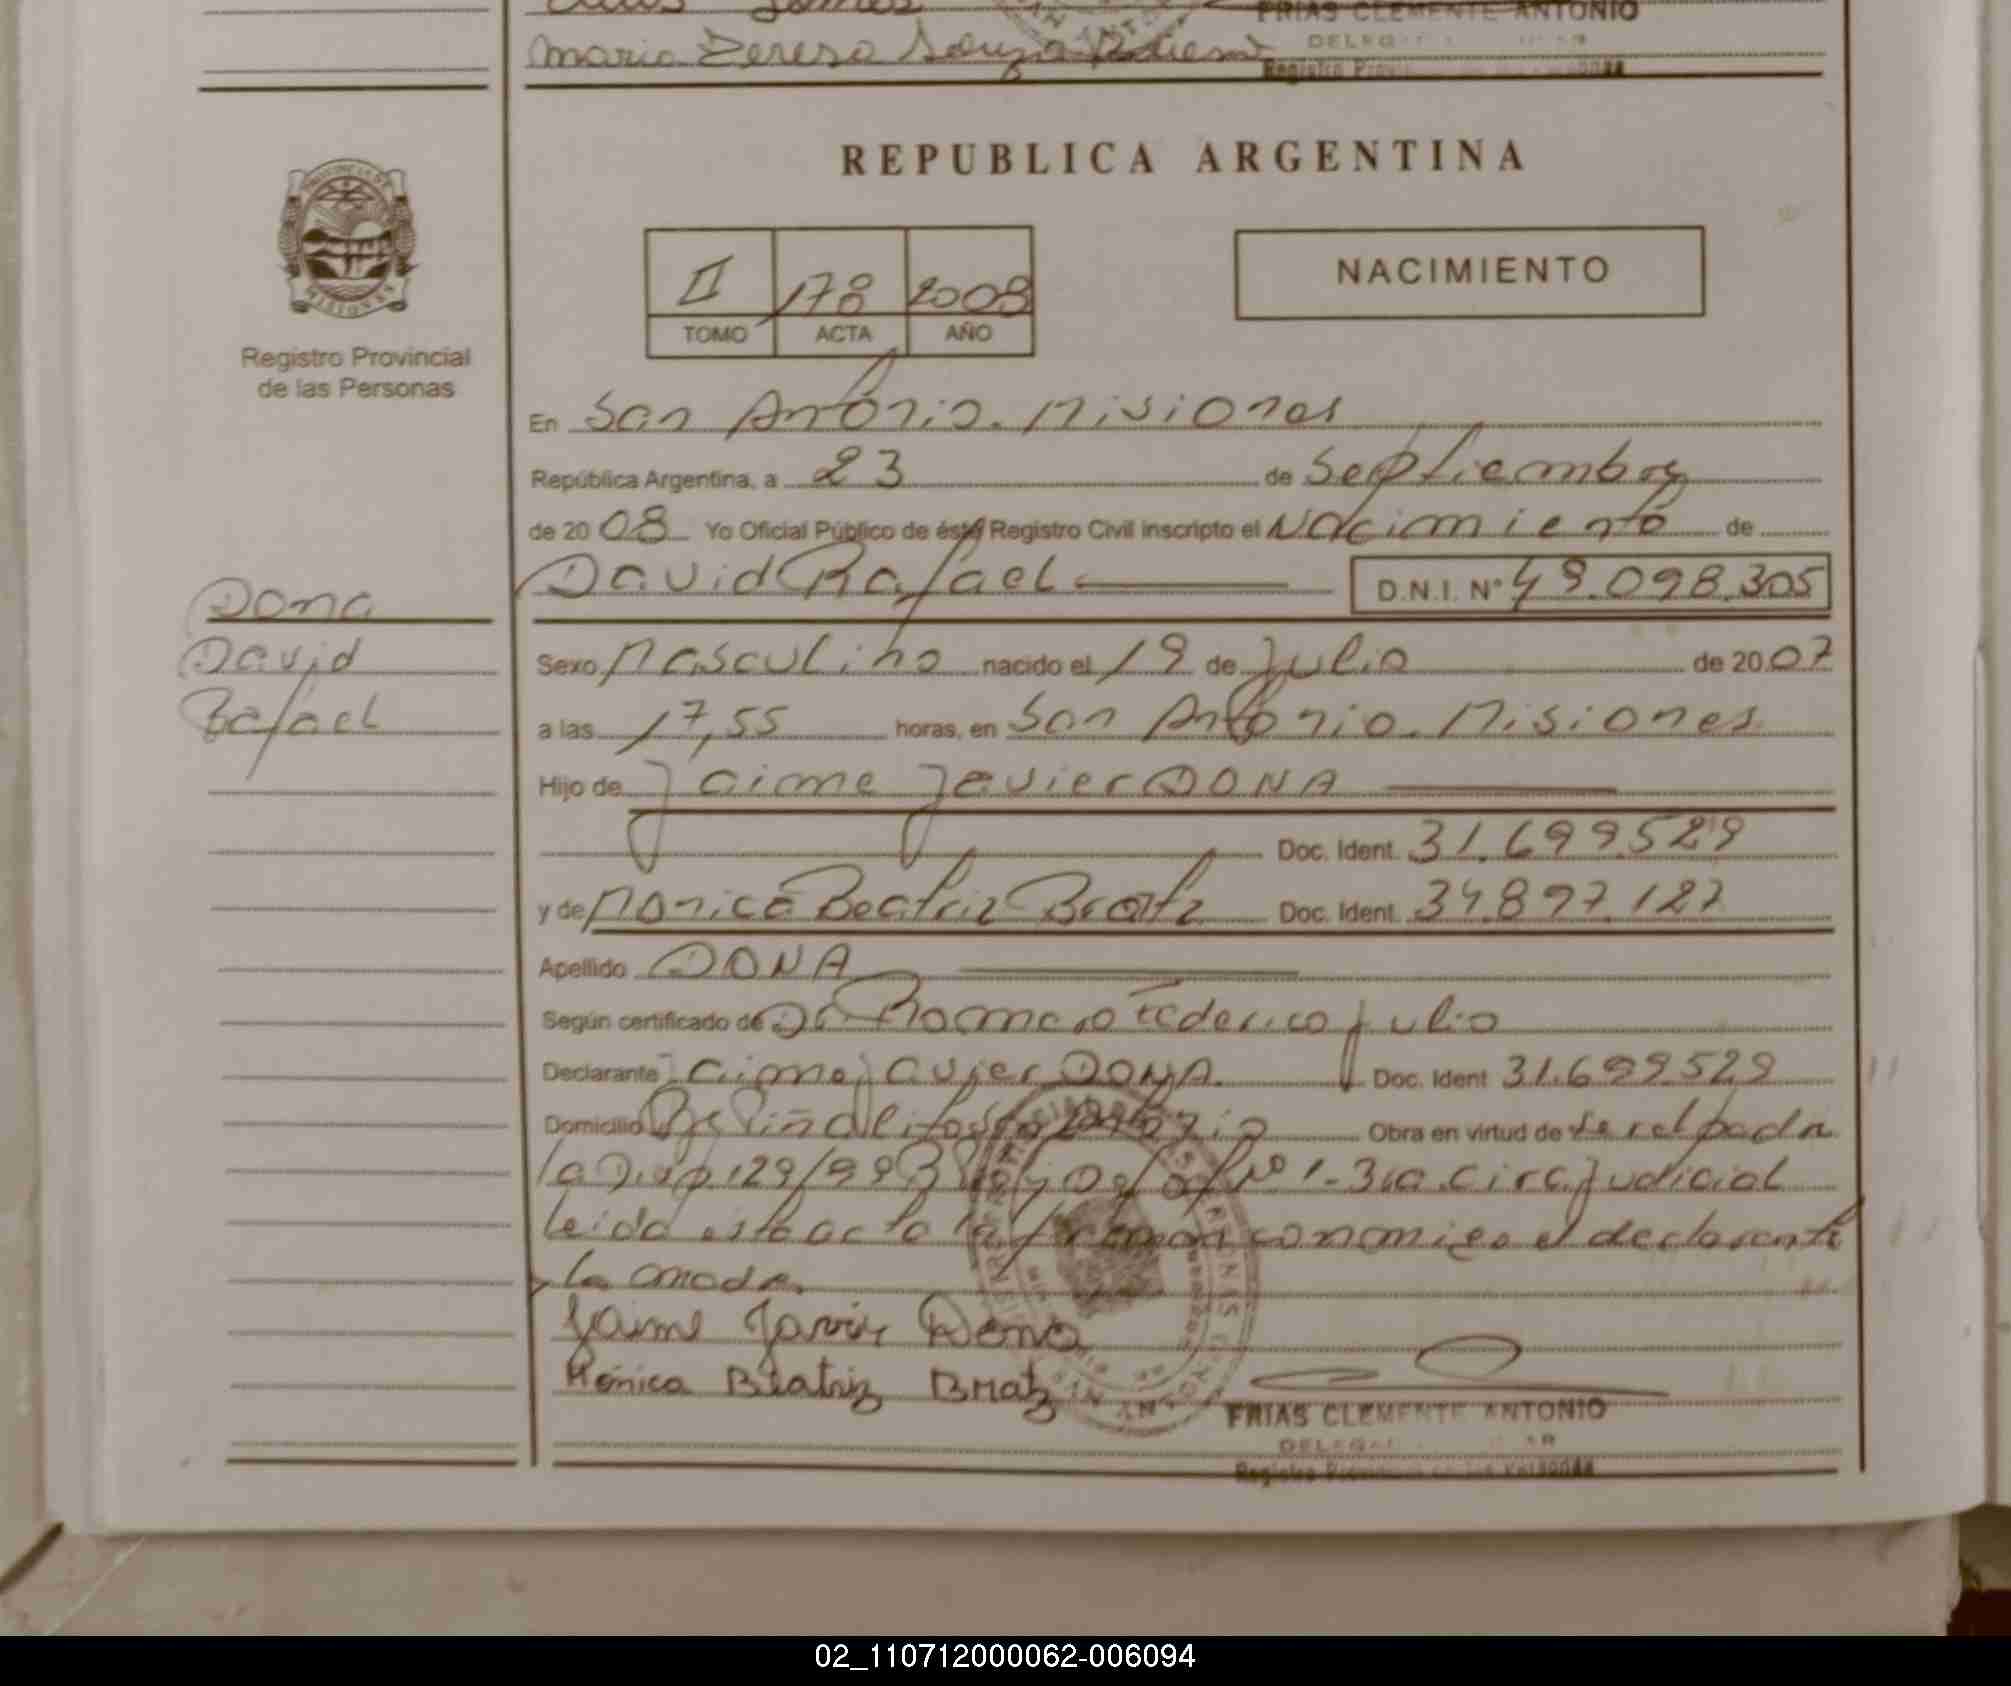 Maria Teresa Souza
FRIAS CLEMENTE ANTONIO
REPUBLICA ARGENTINA
PROVINCIA DE
MISIONES
Registro Provincial
de las Personas
II 178 2008
TOMO ACTA AÑO
NACIMIENTO
En San Antonio. Misiones
República Argentina, a 23 de Septiembre
de 2008 Yo Oficial Público de éste Registro Civil inscripto el Nacimiento de
David Rafael D.N.I. Nº 49.098.305
Dona
David
Rafael
Sexo Masculino nacido el 19 de Julio de 2007
a las 17,55 horas, en San Antonio. Misiones
Hijo de Jaime Javier DONA
Doc. Ident. 31.699.529
y de Monica Beatriz Bratz Doc. Ident. 34.897.127
Apellido DONA
Según certificado de Dr Romero Federico Julio
Declarante Jaime Javier DONA Doc. Ident 31.699529
Domicilio Obra en virtud de
la Disp 129/99 Nº 1-3ra.Circ.Judicial
leida esta acta la firman conmigo el declarante
y la madre.
Jaime Javier Dona
Mónica Beatriz Bratz
FRIAS CLEMENTE ANTONIO
02_110712000062-006094